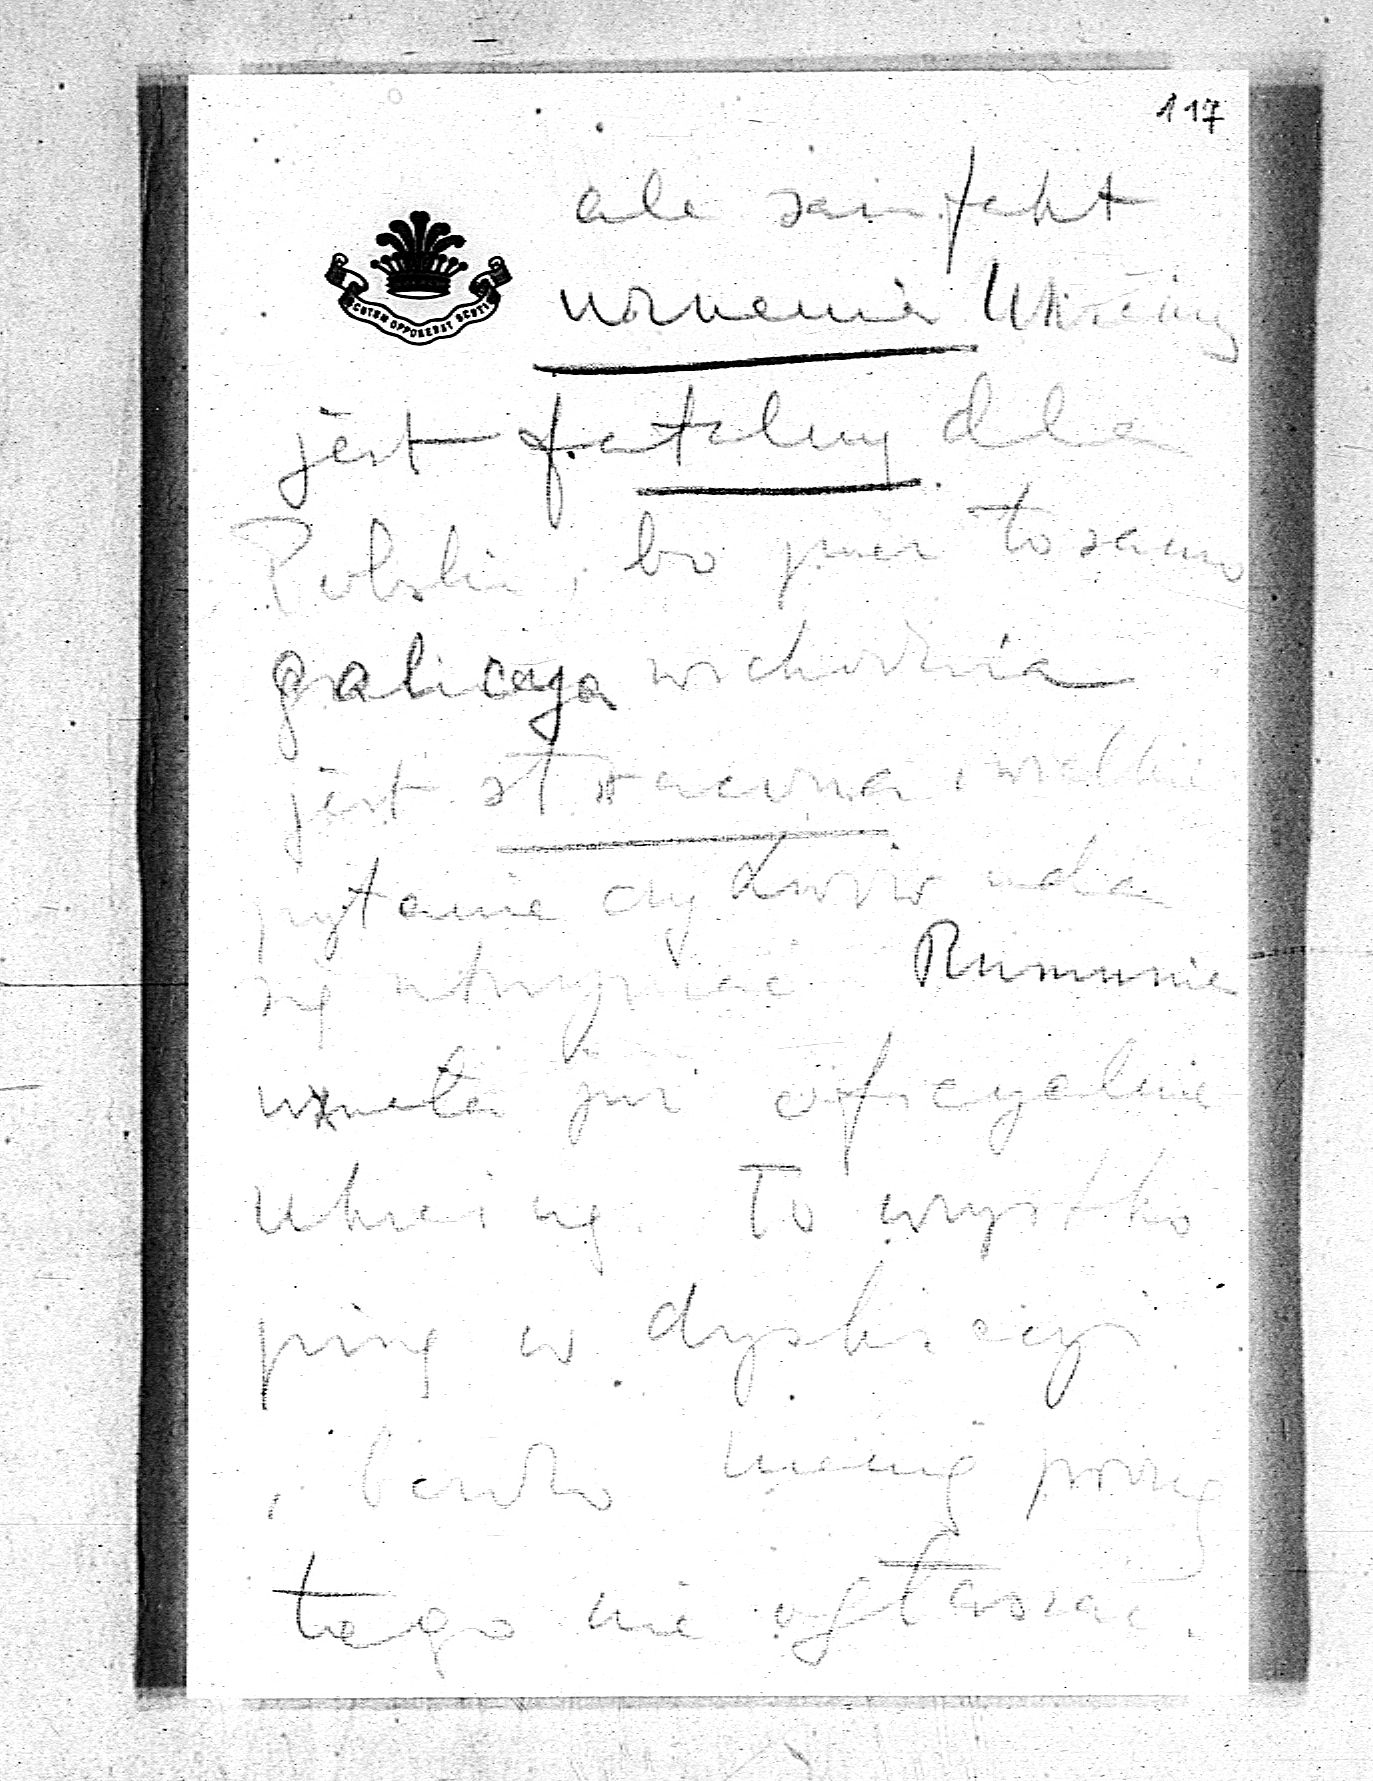 117
ale sam fakt
SCUTUM OPPONEBAT SCUTIS
uznania Ukrainy
jest fatalny dla
Polski, bo przez to samo
galicya wschodnia
jest stracona, wielkie
pytanie czy Lwów uda
się utrzymać Rumunia
uznała już oficyalnie
Ukrainę. To wszystko
piszę w dyskrecyi
i bardzo Mamę proszę
tego nie ogłaszać.